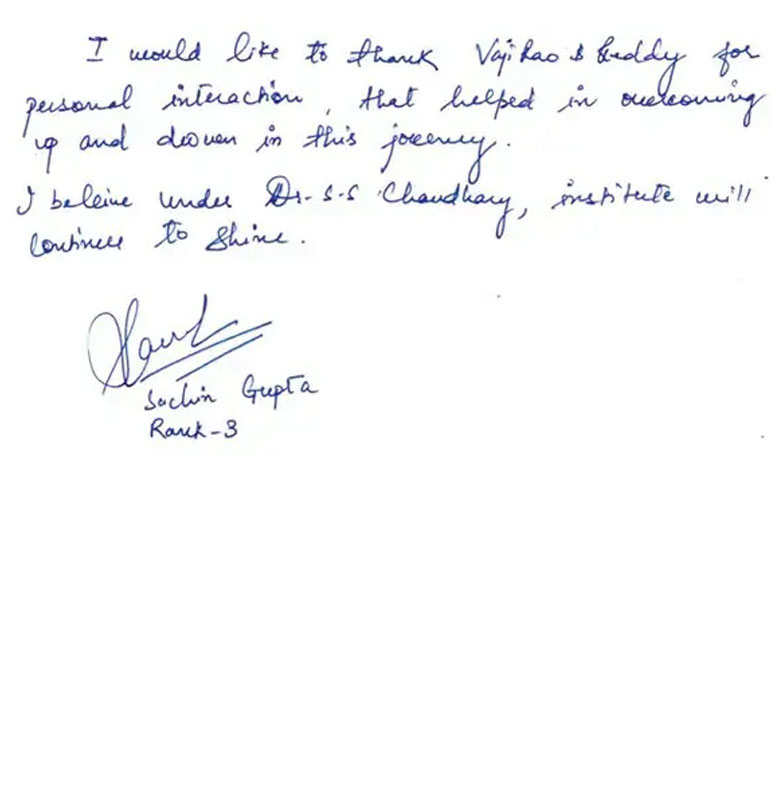 I would like to thank Vaji Rao & Reddy for
personal interaction, that helped in overcoming
up and down in this journey.
I beleive under Dr. S.S Chaudhary, institute will
continue to shine.
Sachin Gupta
Rank-3